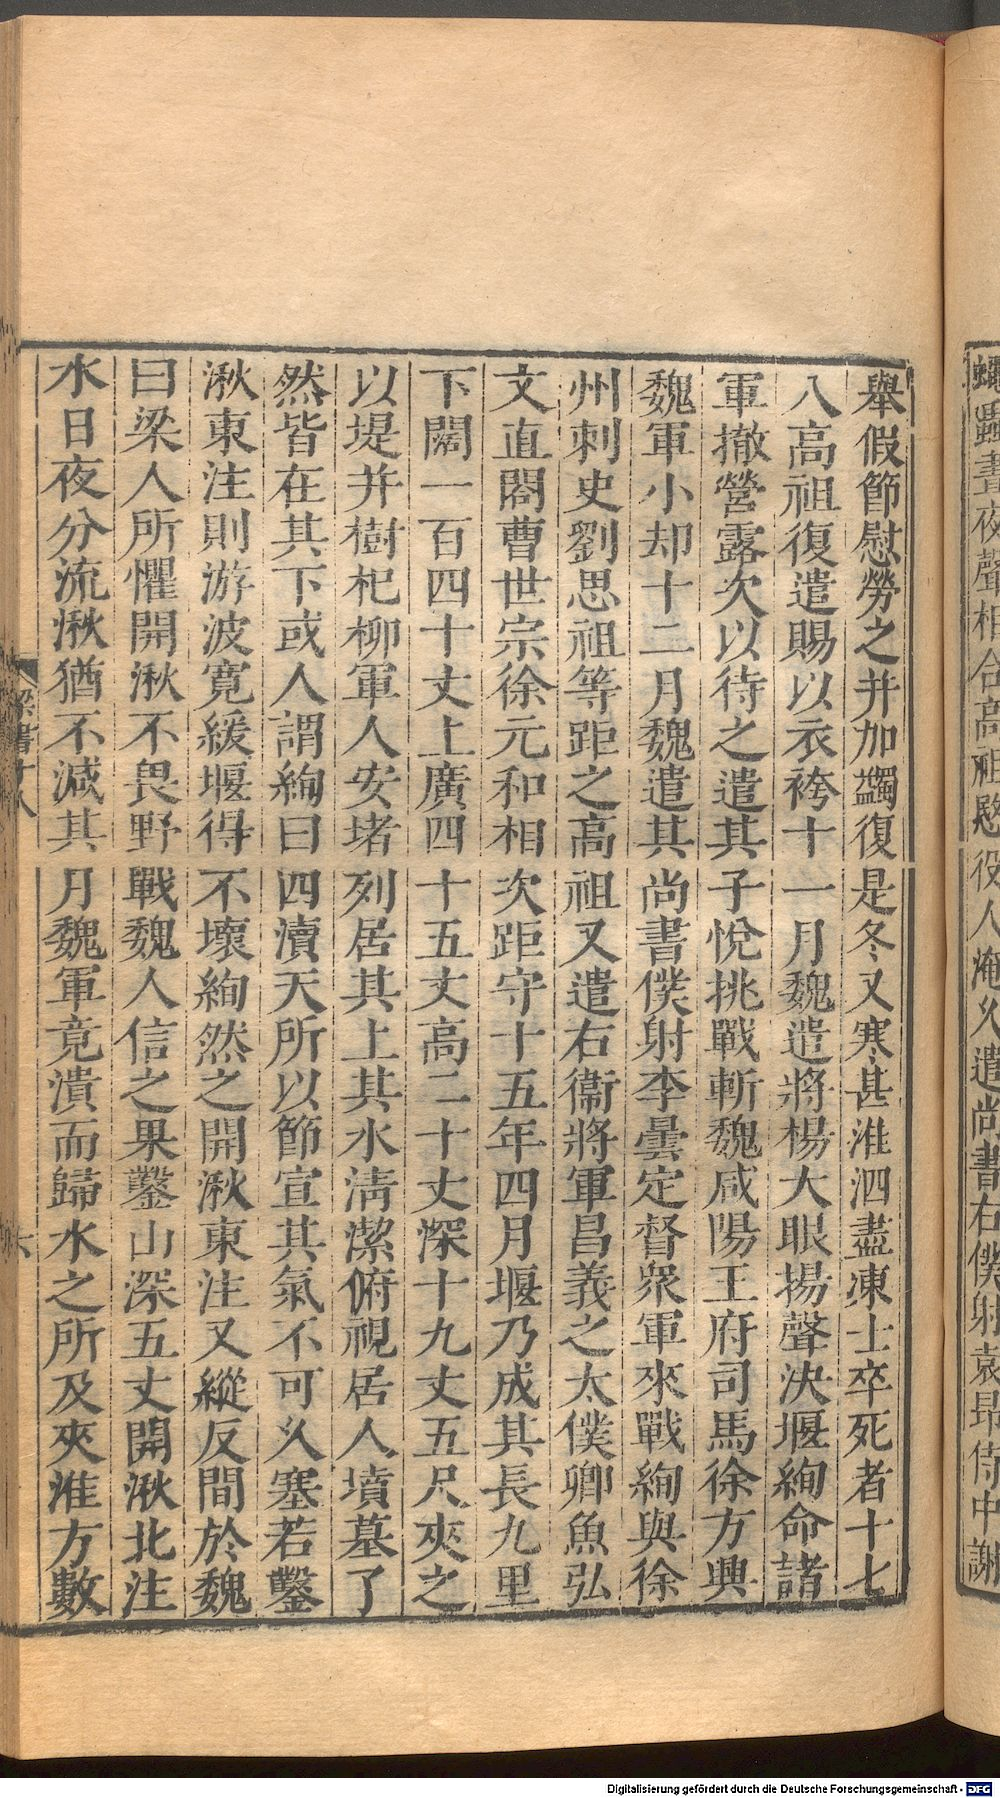 蠅蟲晝夜聲相合高祖愍役人淹久遣尚書右僕射袁昻侍中謝
舉假節慰勞之并加蠲復是冬又寒甚淮泗盡凍士卒死者十七
八高祖復遣賜以衣袴十一月魏遣將楊大眼揚聲決堰絢命諸
軍撤營露次以待之遣其子悅挑戰斬魏咸陽王府司馬徐方興
魏軍小却十二月魏遣其尚書僕射李曇定督衆軍來戰絢與徐
州刺史劉思祖等距之高祖又遣右衞將軍昌義之太僕卿魚弘
文直閣曹世宗徐元和相次距守十五年四月堰乃成其長九里
下闊一百四十丈上廣四十五丈高二十丈深十九丈五尺夾之
以堤并樹杞柳軍人安堵列居其上其水淸潔俯視居人墳墓了
然皆在其下或人謂絢曰四瀆天所以節宣其氣不可久塞若鑿
湫東注則游波寬緩堰得不壞絢然之開湫東注又縱反間於魏
曰梁人所懼開湫不畏野戰魏人信之果鑿山深五丈開湫北注
水日夜分流湫猶不減其月魏軍竟潰而歸水之所及夾淮方數
梁書十八
六
Digitalisierung gefördert durch die Deutsche Forschungsgemeinschaft - DFG